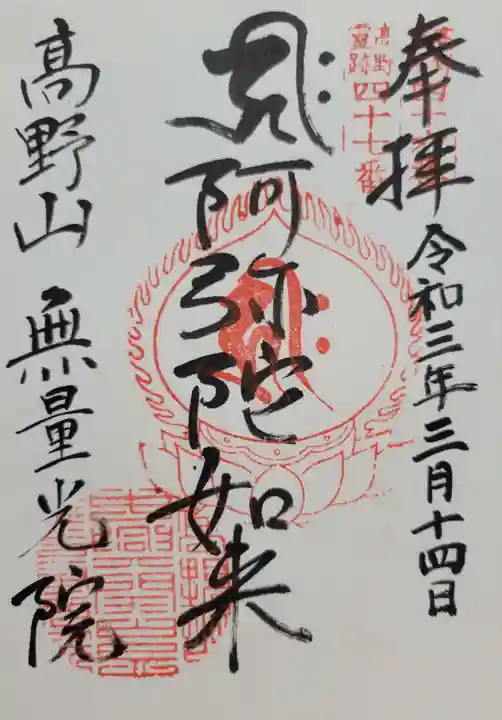 奉拝
令和三年三月十四日
高野
霊跡
四十七番
阿弥陀如来
高野山 無量光院